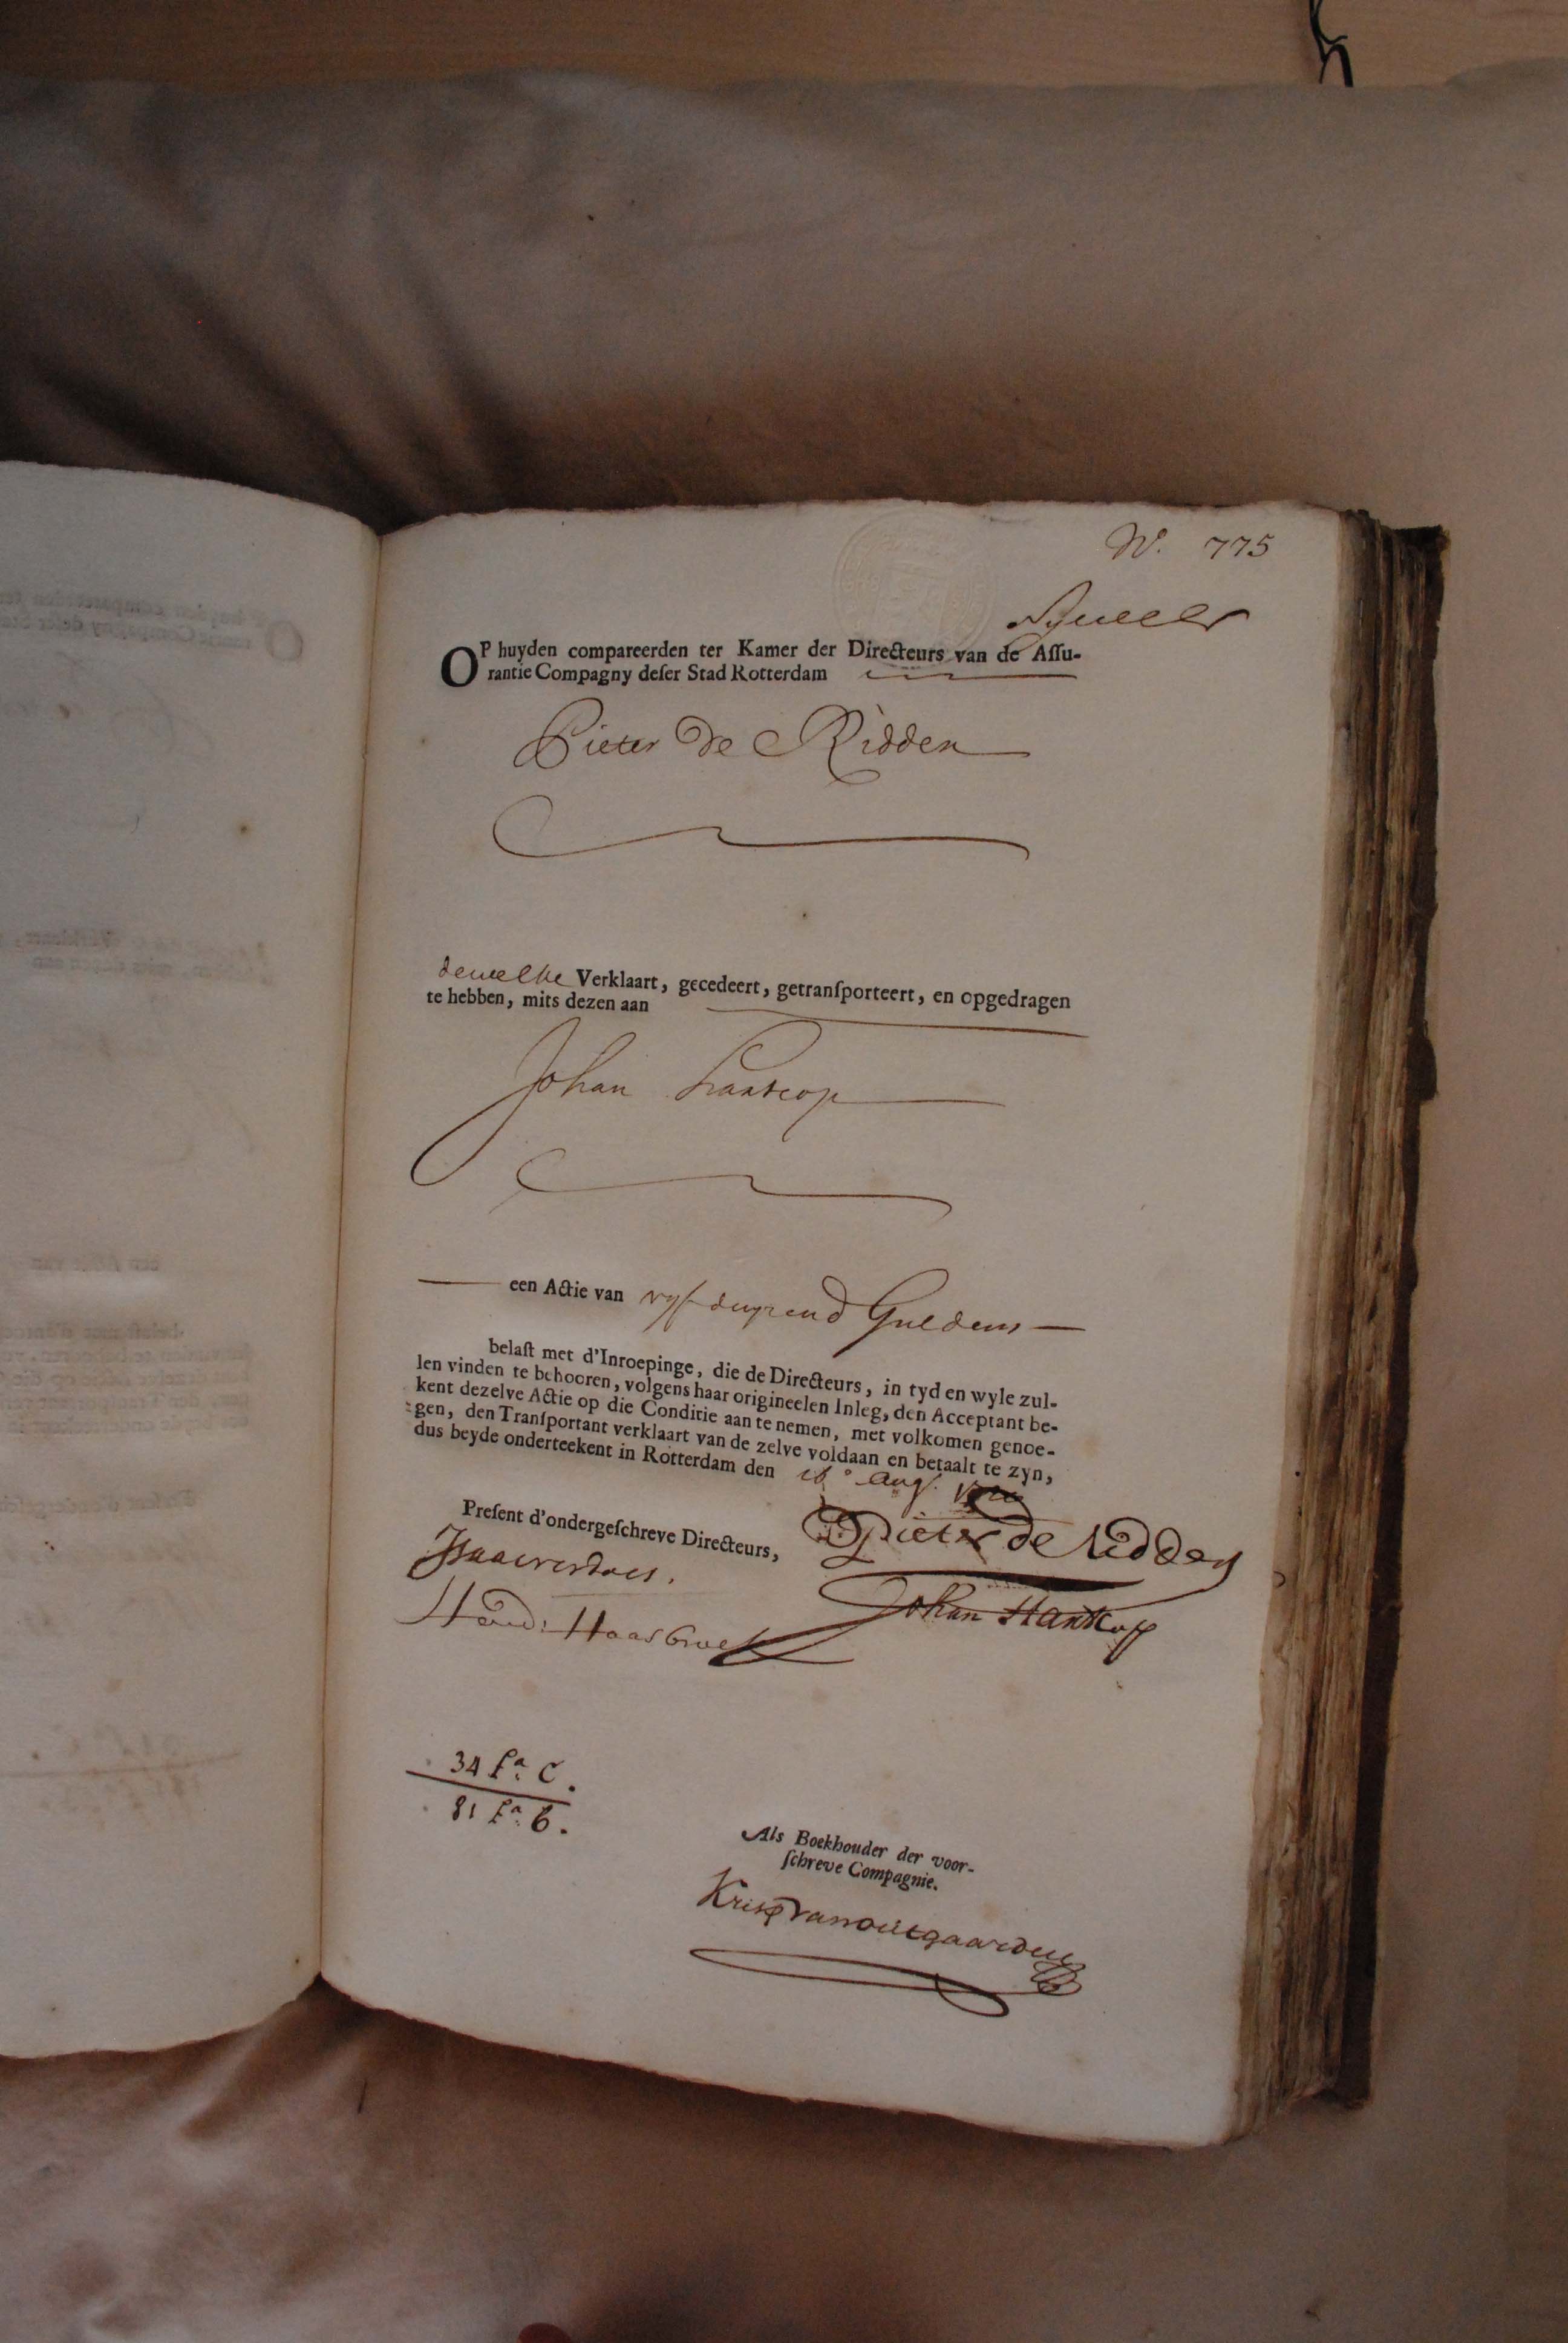 N.º 775
OP huyden compareerden ter Kamer der Directeurs van de Aſſu-
rantie Compagny deſer Stad Rotterdam
Pieter de Ridder
dewelke Verklaart, gecedeert, getranſporteert, en opgedragen
te hebben, mits dezen aan
Johan Hantcop
een Actie van vyf duyzend Guldens
belaſt met d'Inroepinge, die de Directeurs, in tyd en wyle zul-
len vinden te behooren, volgens haar origineelen Inleg, den Acceptant be-
kent dezelve Actie op die Conditie aan te nemen, met volkomen genoe-
gen, den Tranſportant verklaart van de zelve voldaan en betaalt te zyn,
dus beyde onderteekent in Rotterdam den 16º Aug.
Preſent d'ondergeſchreve Directeurs,
Pieter de Ridder
Johan Hantkop
Hend: Haasbroek
34 fº: C.
81 fº: 6.
Als Boekhouder der voor-
ſchreve Compagnie.